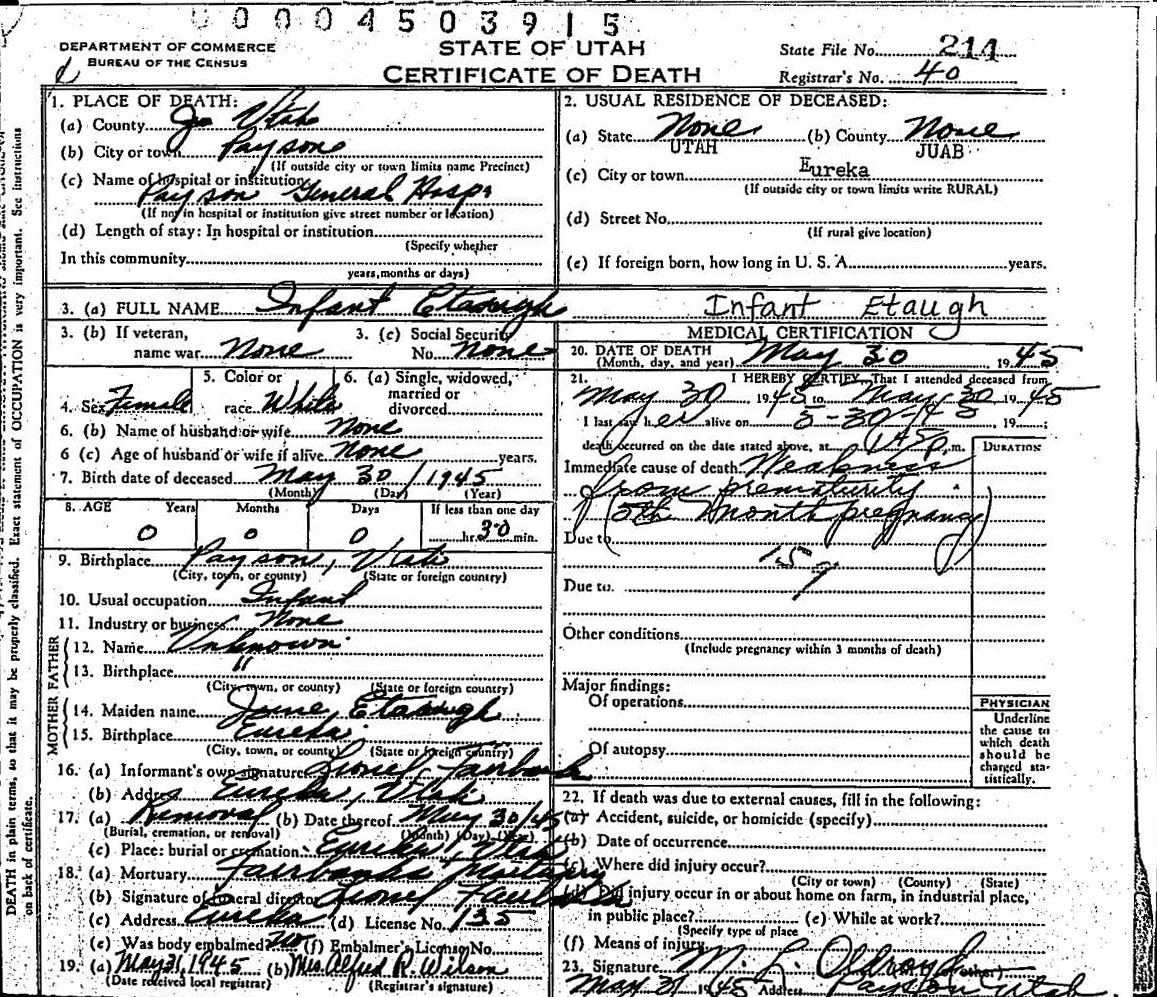 0 0 0 4 5 0 3 9 1 5
DEPARTMENT OF COMMERCE
BUREAU OF THE CENSUS
STATE OF UTAH
CERTIFICATE OF DEATH
State File No. 214
Registrar's No. 40
DEATH in plain terms, so that it may be properly classified. Exact statement of OCCUPATION is very important. See instructions
on back of certificate.
1. PLACE OF DEATH:
(a) County Utah
(b) City or town Payson
(If outside city or town limits name Precinct)
(c) Name of hospital or institution
Payson General Hosp.
(If not in hospital or institution give street number or location)
(d) Length of stay: In hospital or institution
(Specify whether
In this community
years, months or days)
2. USUAL RESIDENCE OF DECEASED:
(a) State None (b) County None
UTAH JUAB
Eureka
(c) City or town
(If outside city or town limits write RURAL)
(d) Street No.
(If rural give location)
(e) If foreign born, how long in U. S. A. years.
3. (a) FULL NAME Infant Etaugh Infant Etaugh
3. (b) If veteran,
name war None
3. (c) Social Security
No. None
4. Sex Female
5. Color or
race White
6. (a) Single, widowed,
married or
divorced
6. (b) Name of husband or wife None
6 (c) Age of husband or wife if alive None years.
7. Birth date of deceased May 30 / 1945
(Month) (Day) (Year)
8. AGE Years Months Days If less than one day
0 0 0 hr. 30 min.
9. Birthplace Payson, Utah
(City, town, or county) (State or foreign country)
10. Usual occupation Infant
11. Industry or business None
FATHER
12. Name Unknown
13. Birthplace "
(City, town, or county) (State or foreign country)
MOTHER
14. Maiden name June Etaugh
15. Birthplace Eureka
(City, town, or county) (State or foreign country)
16. (a) Informant's own signature Lionel Fairbanks
(b) Address Eureka, Utah
17. (a) Removal (b) Date thereof May 30/45
(Burial, cremation, or removal) (Month) (Day) (Year)
(c) Place: burial or cremation Eureka, Utah
18. (a) Mortuary Fairbanks Mortuary
(b) Signature of funeral director Lionel Fairbanks
(c) Address Eureka (d) License No. 135
(e) Was body embalmed No (f) Embalmer's License No.
19. (a) May 31, 1945 (b) Mrs. Alfred R. Wilson
(Date received local registrar) (Registrar's signature)
MEDICAL CERTIFICATION
20. DATE OF DEATH
(Month, day, and year) May 30 1945
21. I HEREBY CERTIFY, That I attended deceased from
May 30, 1945 to May 30 1945
I last saw her alive on 5-30-45, 19 ;
death occurred on the date stated above, at 1:45 p.m.
DURATION
Immediate cause of death: Weakness
from prematurity
(5th month pregnancy)
Due to
159
Due to.
Other conditions
(Include pregnancy within 3 months of death)
Major findings:
Of operations
Of autopsy
PHYSICIAN
Underline
the cause to
which death
should be
charged sta-
tistically.
22. If death was due to external causes, fill in the following:
(a) Accident, suicide, or homicide (specify)
(b) Date of occurrence
(c) Where did injury occur?
(City or town) (County) (State)
(d) Did injury occur in or about home on farm, in industrial place,
in public place? (e) While at work?
(Specify type of place
(f) Means of injury
23. Signature M. L. Oldroyd
May 31 1945 Address Payson Utah